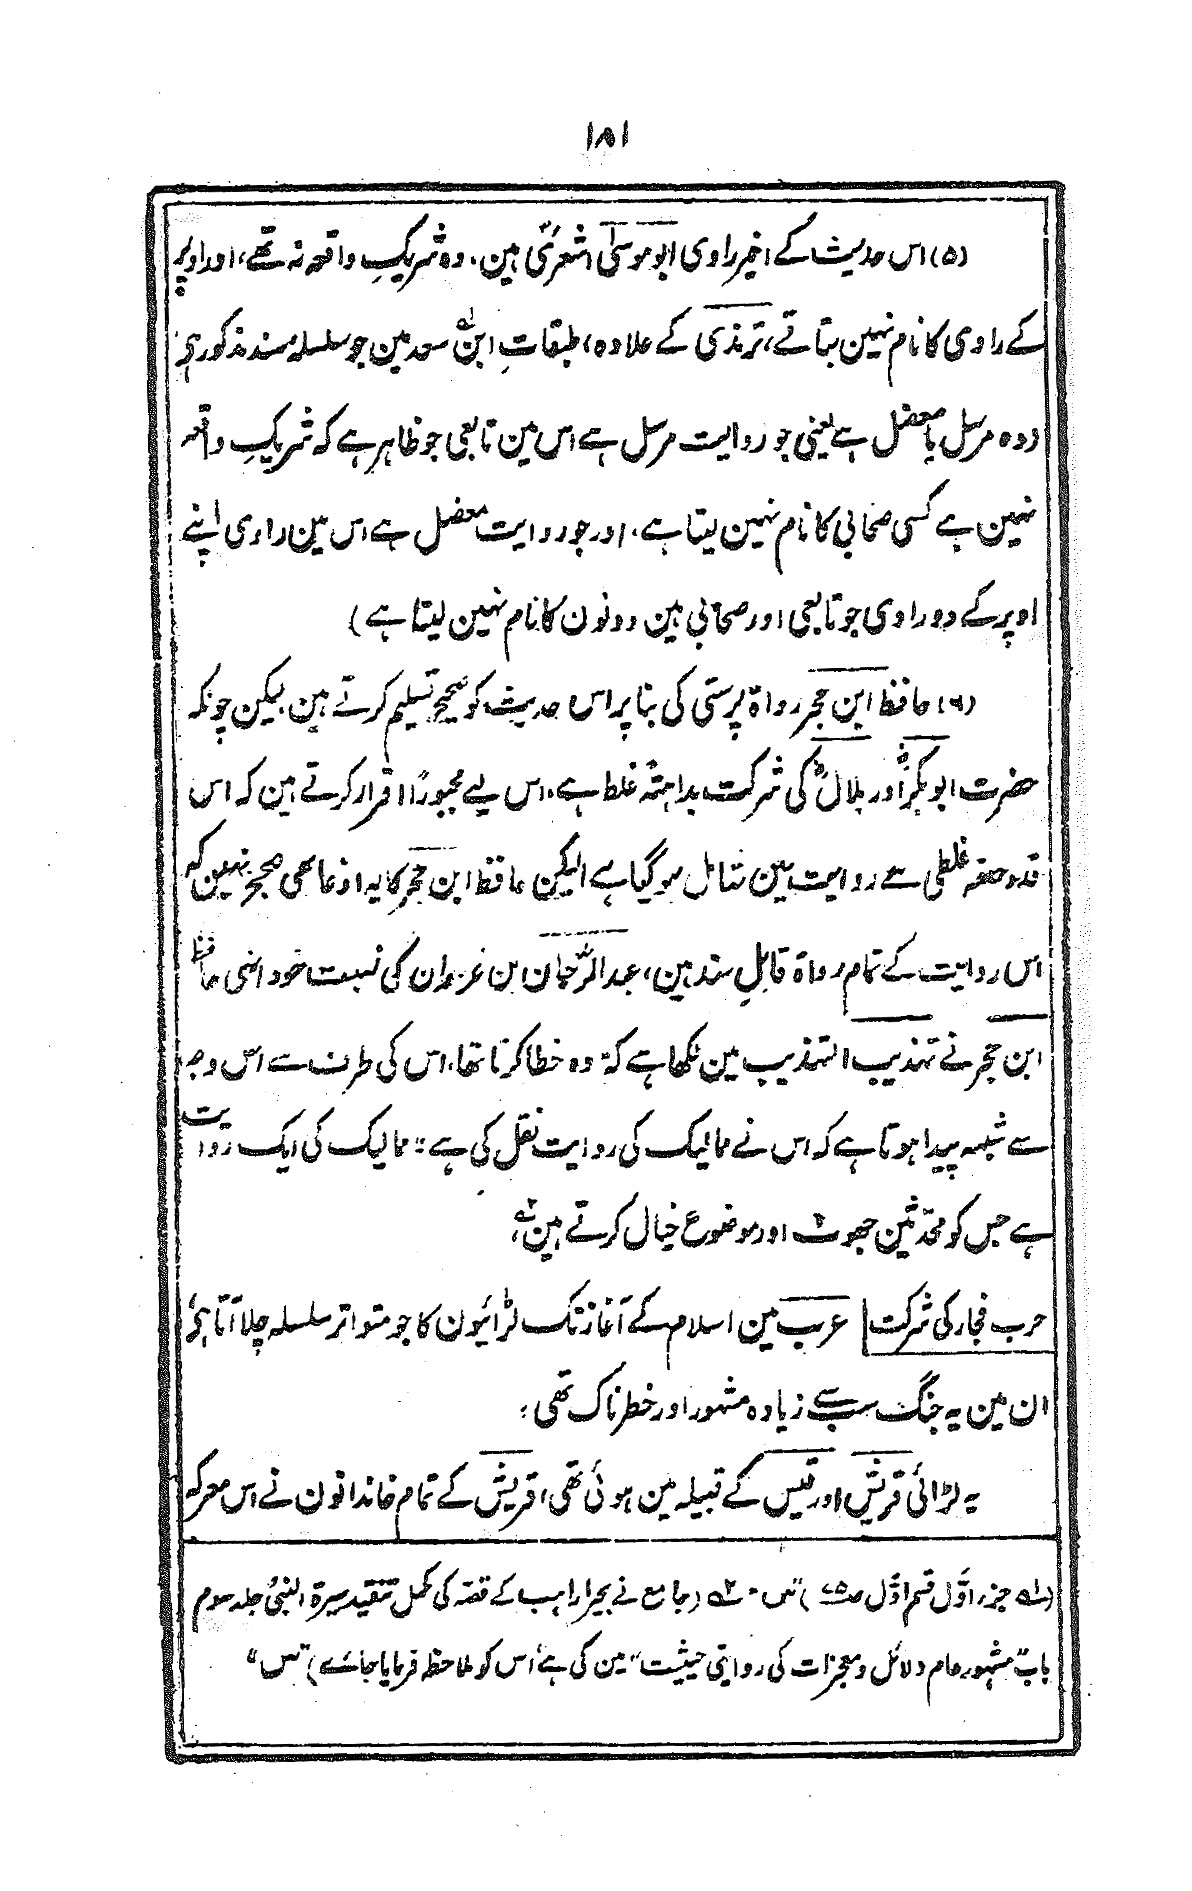 ۱۸۱
(۵) اس حدیث کے اخیر راوی ابو موسیٰ اشعریؓ ہین، وہ شریکِ واقعہ نہ تھے، اور اوپر
کے راوی کا نام نہین بتاتے، ترمذی کے علاوہ، طبقاتِ ابن سعد مین جو سلسلہ سند مذکور ہی
(وہ مرسل یا معضل ہے یعنی جو روایت مرسل ہے اس مین تابعی جو ظاہر ہے کہ شریکِ واقعہ
نہین ہے کسی صحابی کا نام نہین لیتا ہے، اور جو روایت معضل ہے اس مین راوی اپنے
اوپر کے دو راوی جو تابعی اور صحابی ہین دونون کا نام نہین لیتا ہے)
(۶) حافظ ابن حجر رواۃ پرستی کی بنا پر اس حدیث کو صحیح تسلیم کرتے ہین، لیکن چونکہ
حضرت ابوبکرؓ اور بلالؓ کی شرکت بداہتہً غلط ہے، اس لیے مجبوراً اقرار کرتے ہین کہ اس
قدر حصہ غلطی سے روایت مین شامل ہو گیا ہے لیکن حافظ ابن حجر کا یہ ادّعا بھی صحیح نہین کہ
اس روایت کے تمام رواۃ قابلِ سند ہین، عبدالرحمان بن غزوان کی نسبت خود انہی حافظ
ابن حجر نے تہذیب التہذیب مین لکھا ہے کہ "وہ خطا کرتا تھا، اس کی طرف سے اس وجہ
سے شبہہ پیدا ہوتا ہے کہ اس نے ممالیک کی روایت نقل کی ہے" ممالیک کی ایک روایت
ہے جس کو محدثین جھوٹ اور موضوع خیال کرتے ہین،
حرب فجار کی شرکت عرب مین اسلام کے آغاز تک لڑائیون کا جو متواتر سلسلہ چلا آتا ہی
ان مین یہ جنگ سب سے زیادہ مشہور اور خطرناک تھی،
یہ لڑائی قریش اور قیس کے قبیلہ مین ہوئی تھی، قریش کے تمام خاندانون نے اس معرکہ
(لہ جزء اوّل قسم اوّل ص۷۵) "س" ۔ ۲ (جامع نے بحیرا راہب کے قصہ کی مکمل تنقید سیرۃ النبیؐ جلد سوم
باب "مشہور عام دلائل و معجزات کی روایتی حیثیت" مین کی ہے، اس کو ملاحظہ فرمایا جائے) "س"